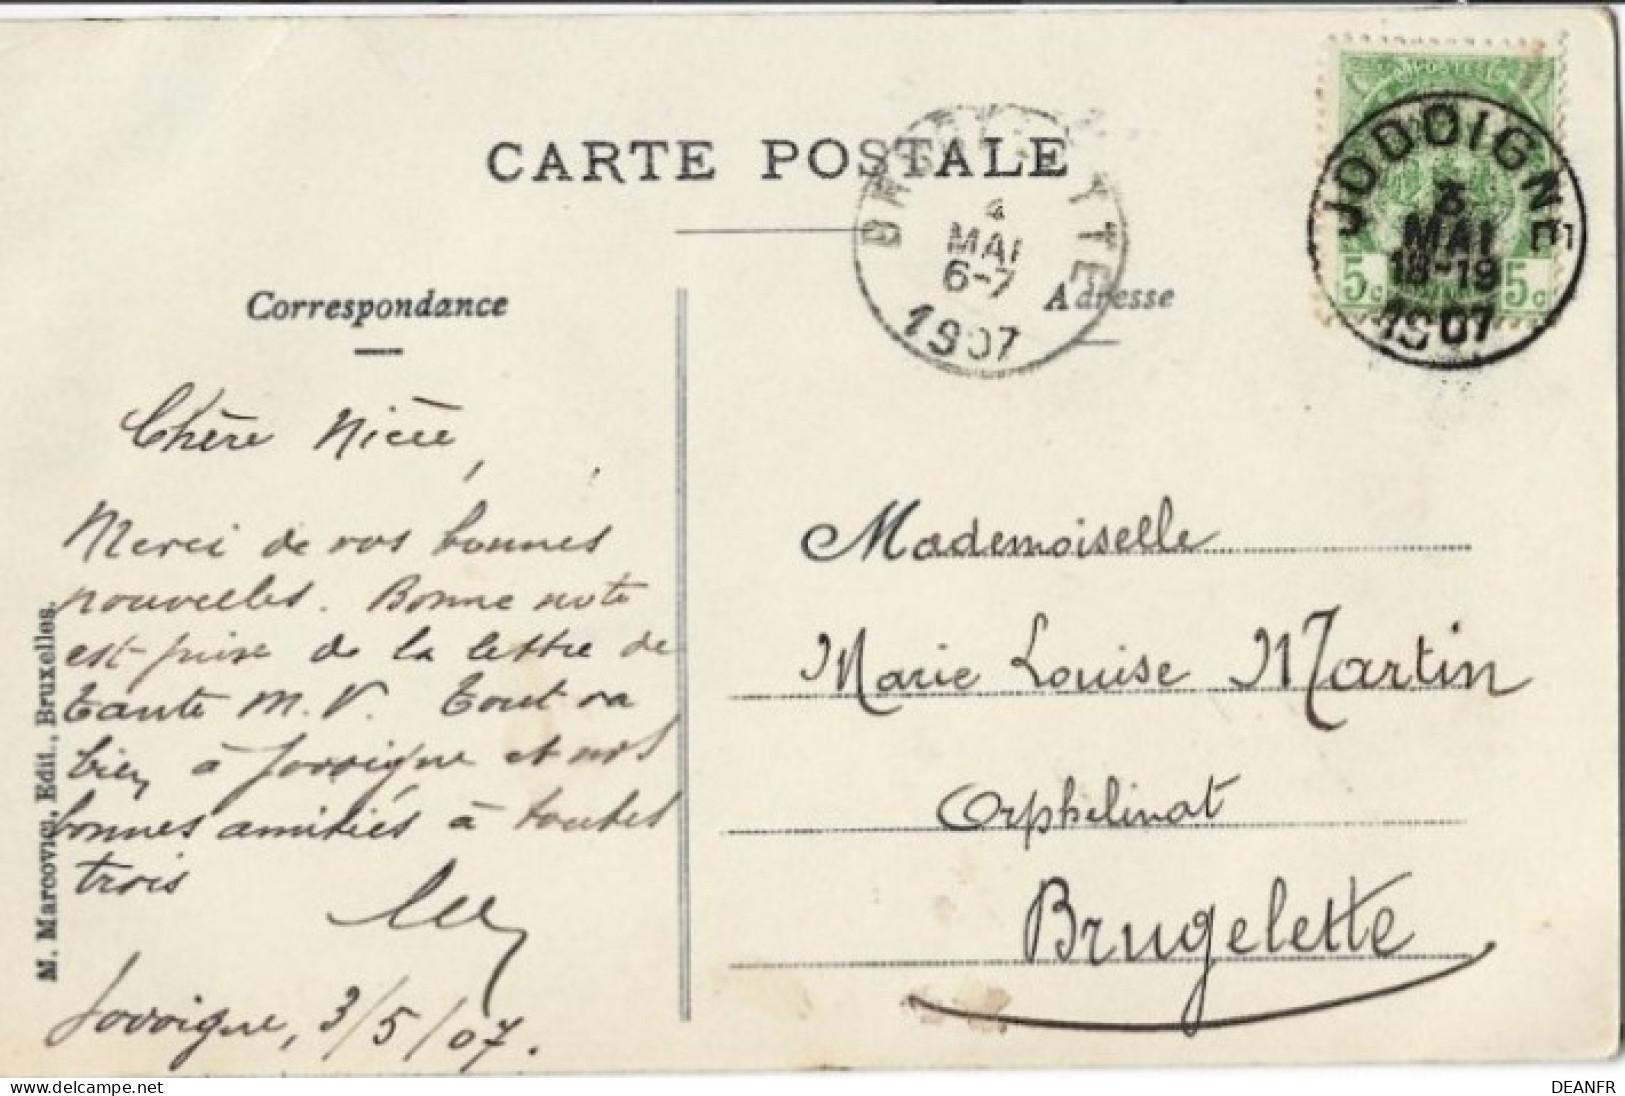 CARTE POSTALE
Correspondance
Adresse
POSTES
5c 5c
JODOIGNE
3
MAI
18-19
1907
4
MAI
6-7
1907
Chère Nièce,
Merci de vos bonnes
nouvelles. Bonne note
est prise de la lettre de
tante M.V. Tout va
bien à Jodoigne et nos
bonnes amitiés à toutes
trois
Jodoigne, 3/5/07.
Mademoiselle
Marie Louise Martin
Orphelinat
Brugelette
M. Marcovici, Edit., Bruxelles.
DEANFR
delcampe.net